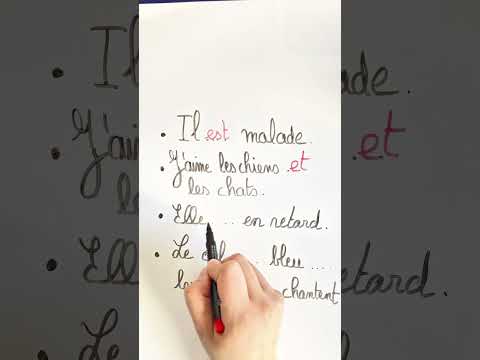 • Il est malade.
• J'aime les chiens et
les chats.
• Elle ... en retard.
• Le ... bleu ...
chantent